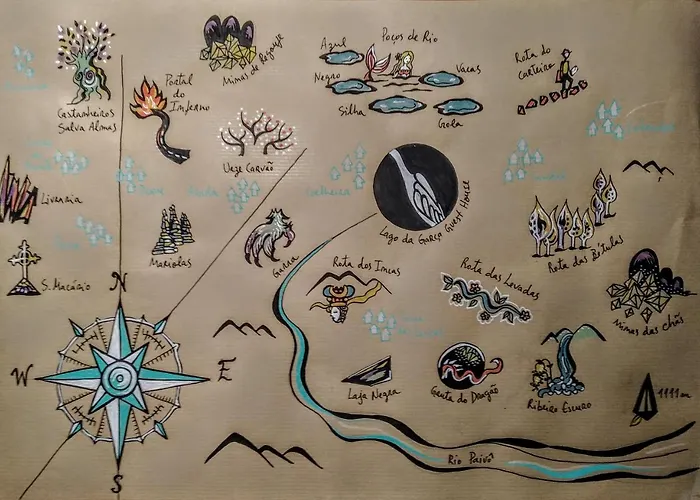 Azul
Poços de Rio
Negro
Vacas
Silha
Gola
Rota do
Carteiro
Minas de Regoufe
Portal
do
Inferno
Castanheiros
Salva Almas
Ueze Carvão
Livraria
Mariolas
Garra
S. Macário
Lago da Garça Guest House
Rota dos Incas
Rota das Levadas
Rota das Bétulas
Minas das Chãs
Laja Negra
Gruta do Dragão
Ribeiro Escuro
1111 m
Rio Paivô
N
W
E
S